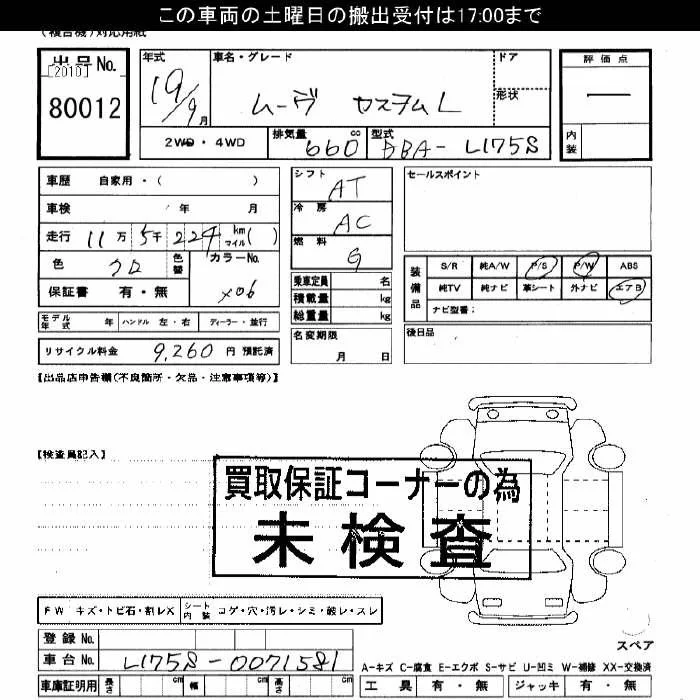 この車両の土曜日の搬出受付は17:00まで
(複合機)対応用紙
出品No.
[2010]
80012
年式
19/9月
車名・グレード
ムーヴ カスタムL
ドア
形状
評価点
―
内装
2WD・4WD
排気量 660 cc
型式 BBA-L175S
車歴 自家用・( )
車検 年 月
走行 11万5千224 km マイル( )
色 クロ 色替
カラーNo. X06
保証書 有・無
シフト AT
冷房 AC
燃料 G
乗車定員 名
積載量 kg
総重量 kg
セールスポイント
装備品
S/R 純A/W P/S P/W ABS
純TV 純ナビ 革シート 外ナビ エアB
ナビ型番:
モデル年式 年 ハンドル 左・右 ディーラー・並行
名変期限
月 日
後日品
リサイクル料金 9,260 円 預託済
【出品店申告欄(不良箇所・欠品・注意事項等)】
【検査員記入】
買取保証コーナーの為
未検査
FW キズ・トビ石・割レX
シート内装 コゲ・穴・汚レ・シミ・破レ・スレ
登録No.
車台No. L175S-0071581
スペア
A-キズ C-腐食 E-エクボ S-サビ U-凹ミ W-補修 XX-交換済
車庫証明用 長さ cm 幅 cm 高さ cm
工具 有・無 ジャッキ 有・無